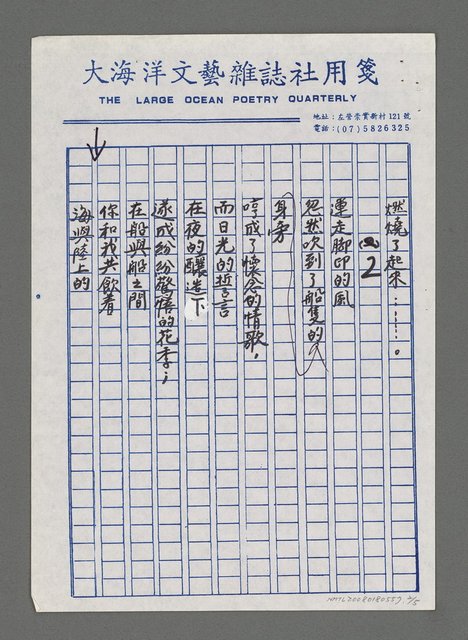 大海洋文藝雜誌社用箋
THE LARGE OCEAN POETRY QUARTERLY
地址：左營崇實新村121號
電話：(07)5826325
燃燒了起來……。
2
連走腳印的風
忽然吹到了船隻的
身旁
哼成了懷念的情歌，
而日光的誓言
在夜的釀造下
遂成紛紛驚悟的花季；
在船與船之間
你和我共飲着
海與陸上的
NMTL20080180557 2/5